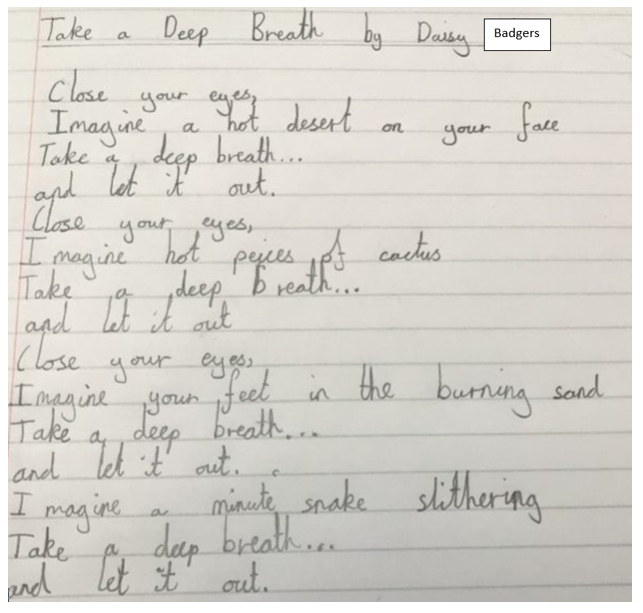 Take a Deep Breath by Daisy Badgers
Close your eyes,
Imagine a hot desert on your face
Take a deep breath...
and let it out.
Close your eyes,
Imagine hot peices of cactus
Take a deep breath...
and let it out
Close your eyes,
Imagine your feet in the burning sand
Take a deep breath...
and let it out.
Imagine a minute snake slithering
Take a deep breath...
and let it out.